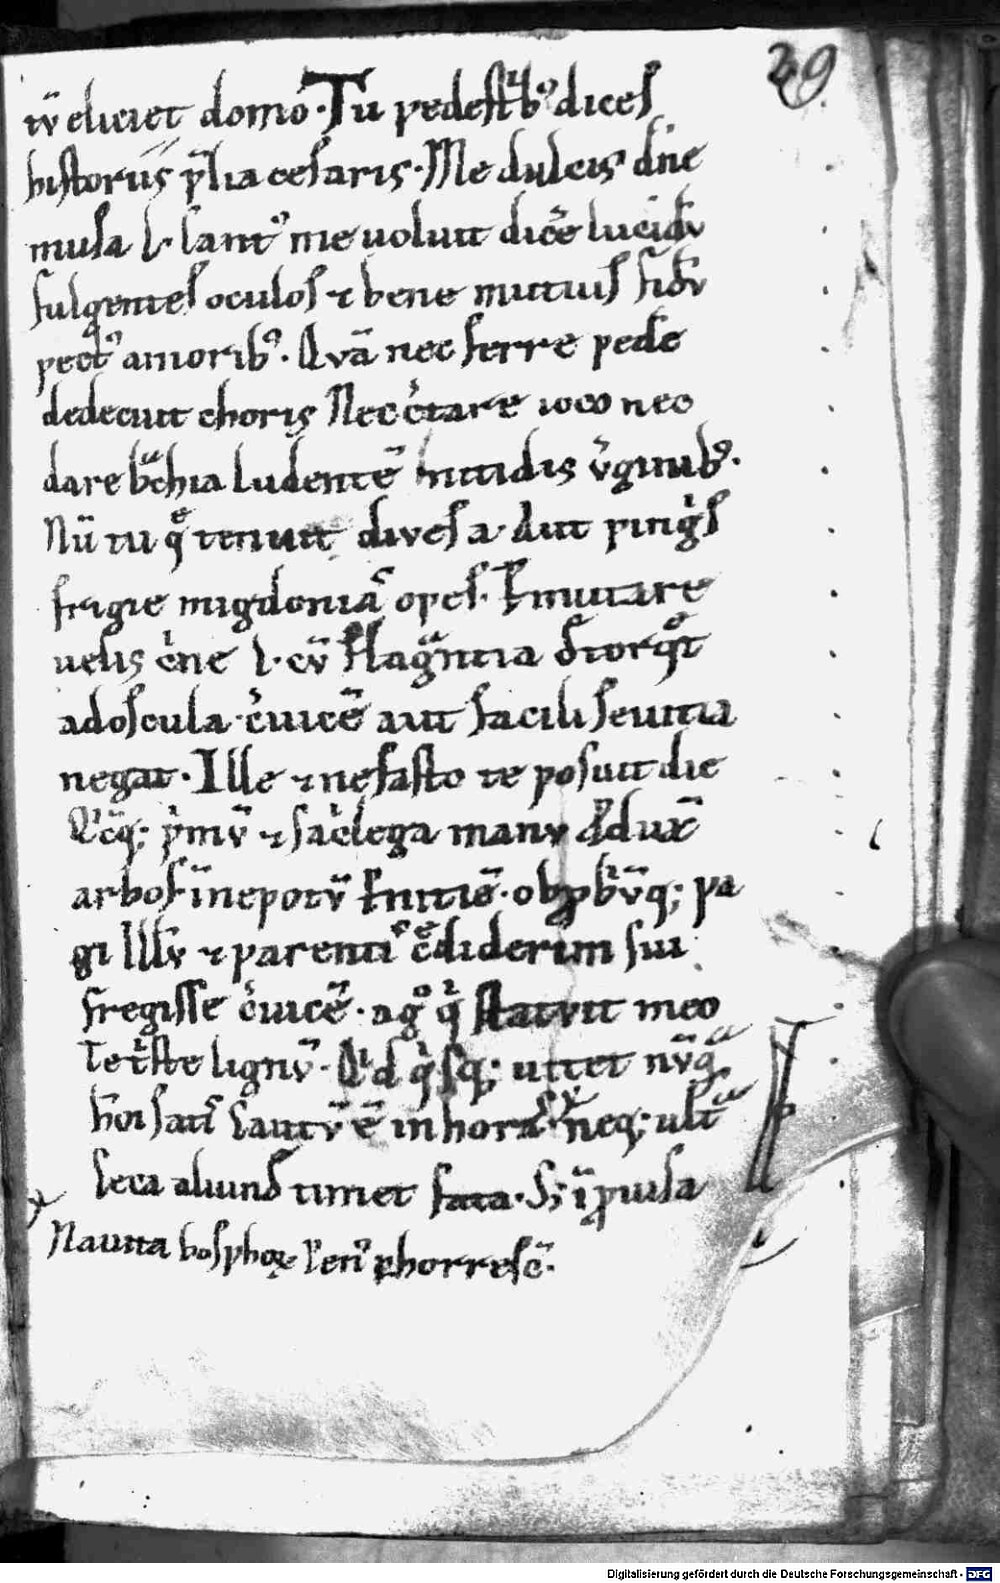 29
tū eliciet domo. Tu pedestrib᷒ dices
historiis p̄lia cesaris. Me dulcis dn̄e
musa l. cant᷒ me uoluit dic̄e lucidū
fulgentes oculos ⁊ bene mutuis fidū
pect᷒ amorib᷒. Quā nec ferre pedē
dedecuit choris Nec c̓tare ioco nec
dare b̄chia ludentē nitidis v̓ginib᷒.
Nū tu q̄ tenuit dives a. Aut pingis
frigie migdoniā opes. P̄mutare
uelis c̓ne l. cū flaḡntia detorq̄t
ad oscula c̓uicē aut facili seuitia
negat. Ille ⁊ nefasto te posuit die
Q'cq; p̓mū ⁊ sac̓lega manu p̄duxͭ
arbos ī nepotū p̄nitiē. obp̄briūq; pa
gi Illū ⁊ parentis c̄diderim sui
fregisse c̓uicē. ag᷒ q̓ statuit meo
Te t̓ste lignū. Q'd q̓sq; uitet nūq̄
hōi satis cautū ē in horas neq; ult̄
ceca aliunde timet fata. S; īp̄uisa
Nauita bosphoꝝ Pen᷒ p̄horrescͭ.
Digitalisierung gefördert durch die Deutsche Forschungsgemeinschaft - DFG